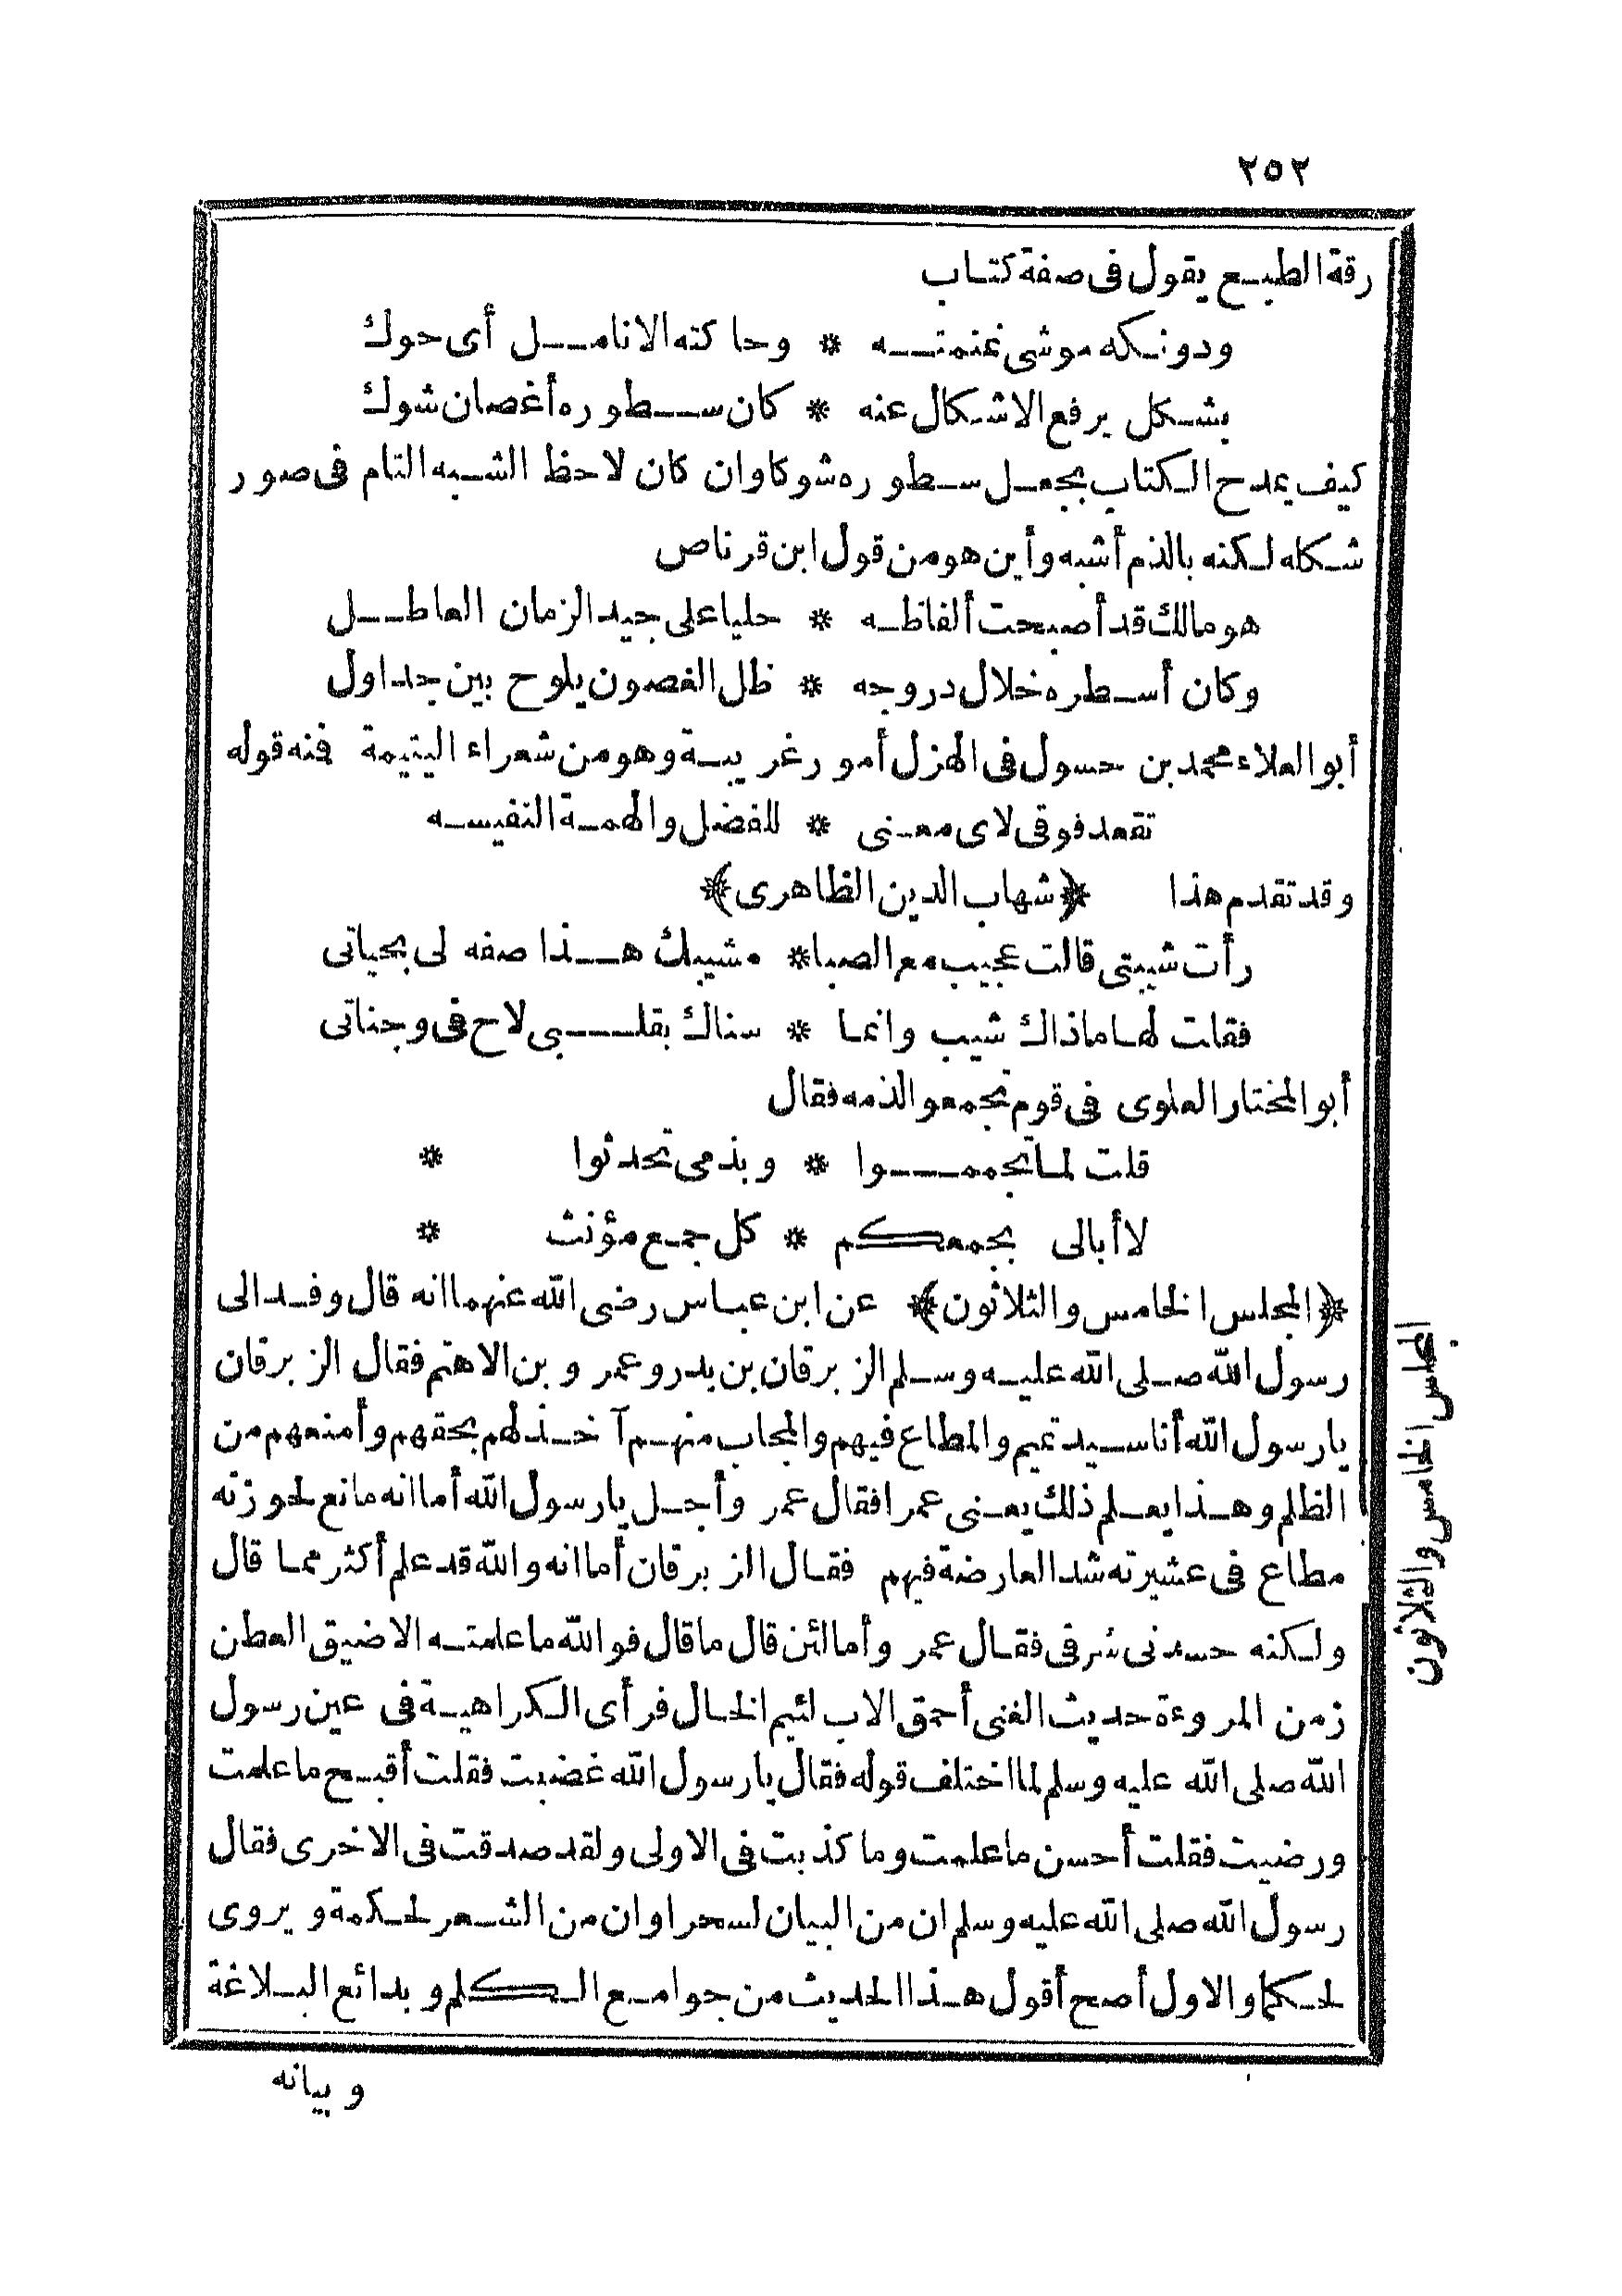 ٢٥٢
رقة الطبع يقول فى صفة كتاب
ودونكه موشى غنمته * وحاكته الانامل أى حوك
بشكل يرفع الاشكال عنه * كان سطوره أغصان شوك
كيف يمدح الكتاب بجعل سطوره شوكا وان كان لاحظ الشبه التام فى صور
شكله لكنه بالذم أشبه وأين هو من قول ابن قرناص
هو مالك قد أصبحت ألفاظه * حليا على جيد الزمان العاطل
وكان أسطره خلال دروجه * ظل الغصون يلوح بين جداول
أبو العلاء محمد بن حسول فى الهزل أمور غريبة وهو من شعراء اليتيمة فمنه قوله
تقعد فوقى لاى معنى * للفضل والهمة النفيسه
وقد تقدم هذا ﴿شهاب الدين الظاهرى﴾
رأت شيبتى قالت عجيب مع الصبا * مشيبك هذا صفه لى بحياتى
فقلت لها ماذاك شيب وانما * سناك بقلبى لاح فى وجناتى
أبو المختار العلوى فى قوم تجمعوا لذمه فقال
قلت لما تجمعوا * وبذمى تحدثوا *
لا أبالى بجمعكم * كل جمع مؤنث *
﴿المجلس الخامس والثلاثون﴾ عن ابن عباس رضى الله عنهما انه قال وفد الى
رسول الله صلى الله عليه وسلم الزبرقان بن بدر وعمرو بن الاهتم فقال الزبرقان
يا رسول الله أنا سيد تميم والمطاع فيهم والمجاب منهم آخذ لهم بحقهم وأمنعهم من
الظلم وهذا يعلم ذلك يعنى عمرا فقال عمرو أجل يا رسول الله أما انه مانع لحوزته
مطاع فى عشيرته شد العارضة فيهم فقال الزبرقان أما انه والله قد علم أكثر مما قال
ولكنه حسدنى شرفى فقال عمرو أما لئن قال ما قال فوالله ما علمته الا ضيق العطن
زمن المروءة حديث الغنى أحمق الاب لئيم الخال فرأى الكراهية فى عين رسول
الله صلى الله عليه وسلم لما اختلف قوله فقال يا رسول الله غضبت فقلت أقبح ما علمت
ورضيت فقلت أحسن ما علمت وما كذبت فى الاولى ولقد صدقت فى الاخرى فقال
رسول الله صلى الله عليه وسلم ان من البيان لسحرا وان من الشعر لحكمة ويروى
لحكما والاول أصح أقول هذا الحديث من جوامع الكلم وبدائع البلاغة
وبيانه
المجلس الخامس والثلاثون